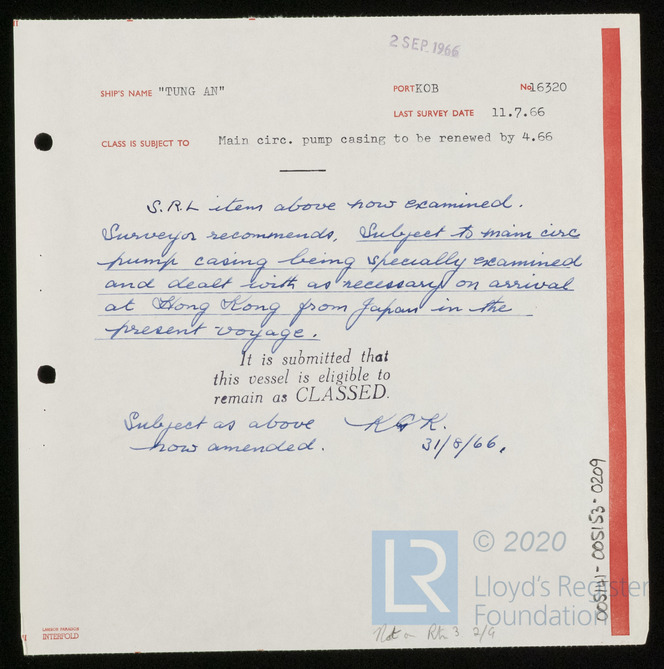 2 SEP 1966
SHIP'S NAME "TUNG AN" PORT KOB No 16320
LAST SURVEY DATE 11.7.66
CLASS IS SUBJECT TO Main circ. pump casing to be renewed by 4.66
S.R.L item above now examined.
Surveyor recommends, Subject to main circ
pump casing being specially examined
and dealt with as necessary on arrival
at Hong Kong from Japan in the
present voyage.
It is submitted that
this vessel is eligible to
remain as CLASSED.
Subject as above K G K.
now amended. 31/8/66.
005141-005153-0209
LR
© 2020
Lloyd's Register
Foundation
LAMSON PARAGON
INTERFOLD
Not on 3 2/9